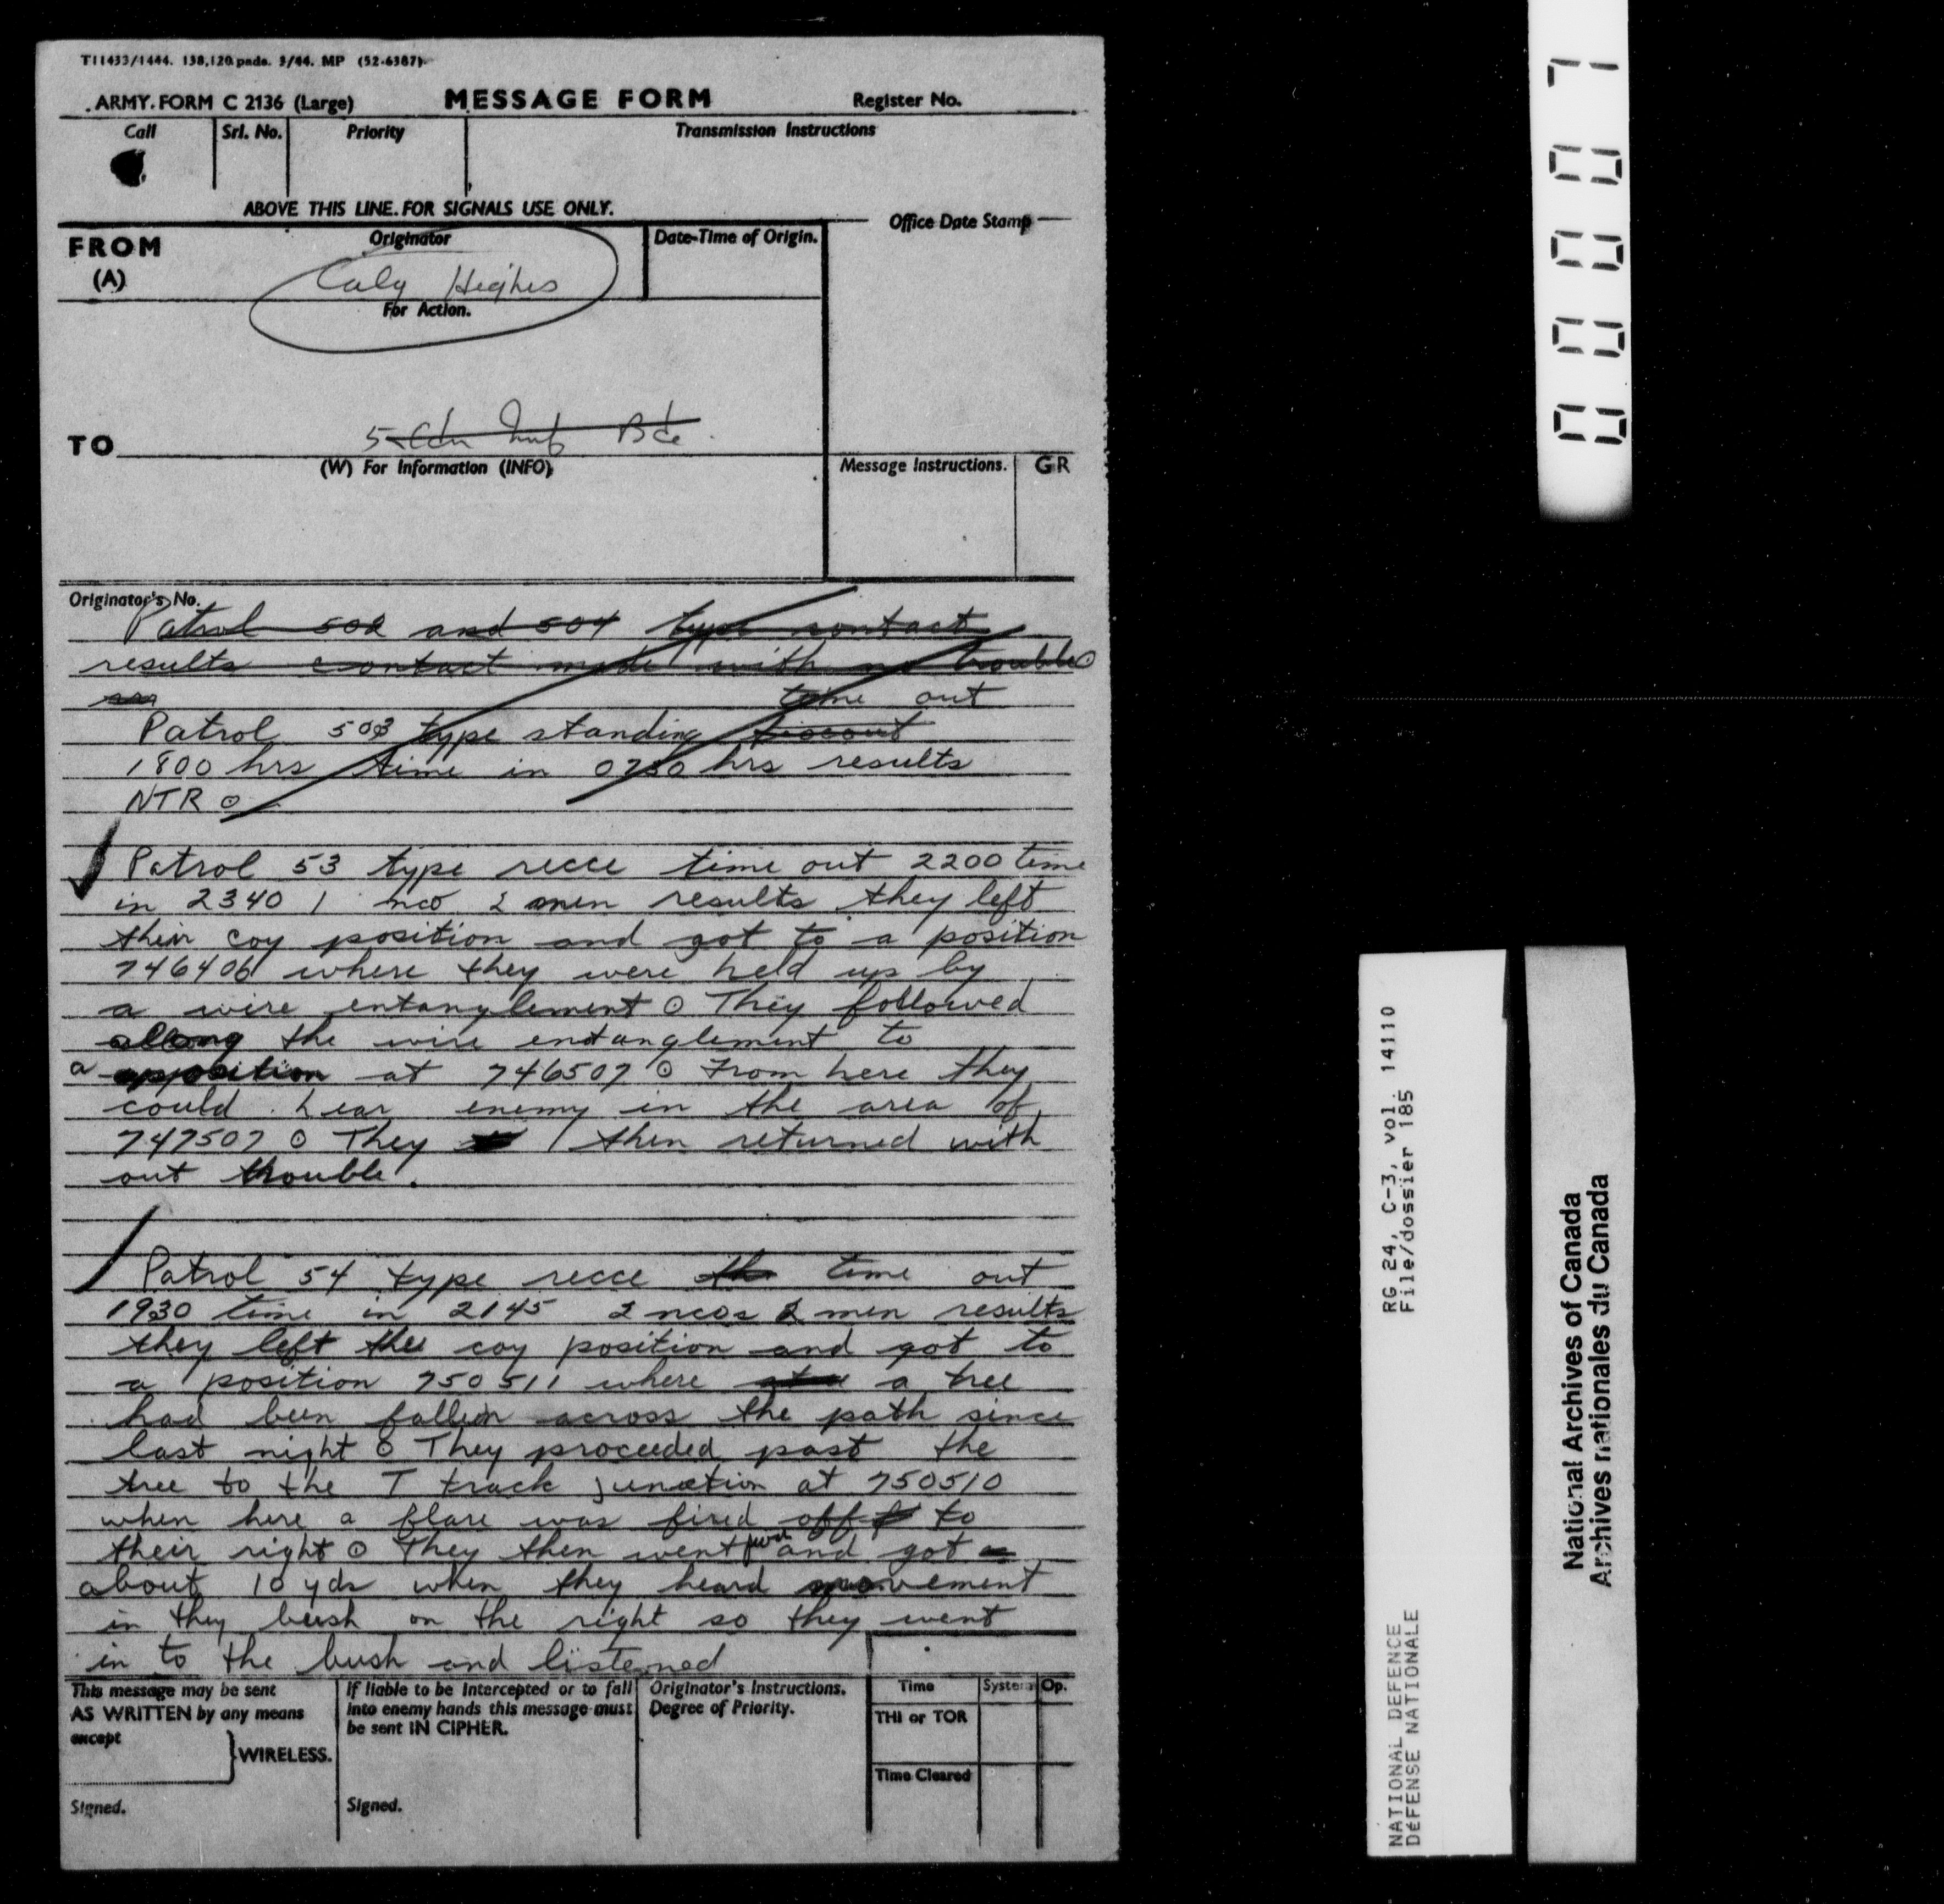 T11433/1444. 138,120 pads. 3/44. MP (52-6387)
ARMY FORM C 2136 (Large) MESSAGE FORM Register No.
Call Srl. No. Priority Transmission Instructions
ABOVE THIS LINE FOR SIGNALS USE ONLY.
FROM
(A)
Originator
Date-Time of Origin.
Office Date Stamp
Calg Highrs
For Action.
TO
5 Cdn Inf Bde
(W) For Information (INFO)
Message Instructions. GR
Originator's No.
Patrol 502 and 504 type contact
results contact made with no trouble ⊙
time out
Patrol 503 type standing
1800 hrs time in 0730 hrs results
NTR ⊙
Patrol 53 type recce time out 2200 time
in 2340 1 nco 2 men results they left
their coy position and got to a position
746406 where they were held up by
a wire entanglement ⊙ They followed
along the wire entanglement to
a position at 746507 ⊙ From here they
could hear enemy in the area of
747507 ⊙ They then returned with
out trouble.
Patrol 54 type recce time out
1930 time in 2145 2 ncos 2 men results
they left the coy position and got to
a position 750511 where a tree
had been fallen across the path since
last night ⊙ They proceeded past the
tree to the T track junction at 750510
when here a flare was fired off to
their right ⊙ They then went fwd and got
about 10 yds when they heard movement
in they bush on the right so they went
in to the bush and listened
This message may be sent
AS WRITTEN by any means
except
WIRELESS.
Signed.
If liable to be intercepted or to fall
into enemy hands this message must
be sent IN CIPHER.
Signed.
Originator's Instructions.
Degree of Priority.
Time System Op.
THI or TOR
Time Cleared
RG 24, C-3, vol. 14110
File/dossier 185
NATIONAL DEFENCE
DÉFENSE NATIONALE
National Archives of Canada
Archives nationales du Canada